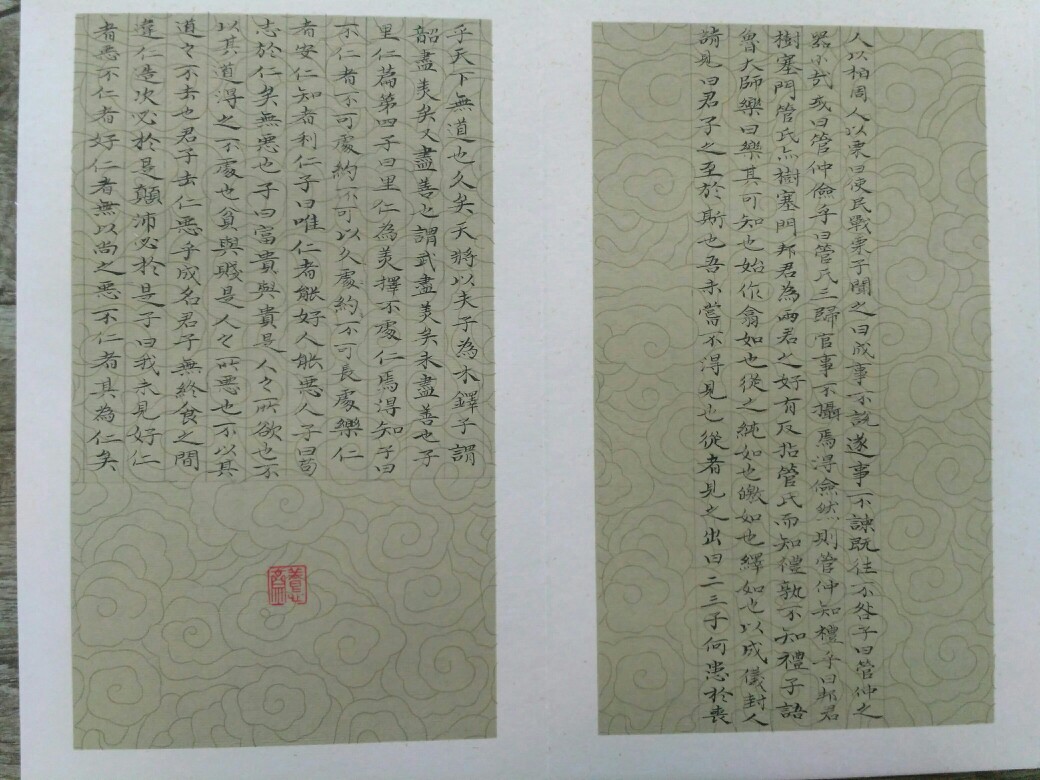 人以柏周人以栗曰使民戰栗子聞之曰成事不説遂事不諫既往不咎子曰管仲之
器小哉或曰管仲儉乎曰管氏三歸官事不攝焉得儉然則管仲知禮乎曰邦君
樹塞門管氏亦樹塞門邦君為兩君之好有反坫管氏而知禮孰不知禮子語
魯大師樂曰樂其可知也始作翕如也從之純如也皦如也繹如也以成儀封人
請見曰君子之至於斯也吾未嘗不得見也從者見之出曰二三子何患於喪
乎天下無道也久矣天將以夫子為木鐸子謂
韶盡美矣又盡善也謂武盡美矣未盡善也子
里仁篇第四子曰里仁為美擇不處仁焉得知子曰
不仁者不可處約不可以久處約不可長處樂仁
者安仁知者利仁子曰唯仁者能好人能惡人子曰苟
志於仁矣無惡也子曰富貴與貴是人之所欲也不
以其道得之不處也貧與賤是人之所惡也不以其
道之不去也君子去仁惡乎成名君子無終食之間
違仁造次必於是顛沛必於是子曰我未見好仁
者惡不仁者好仁者無以尚之惡不仁者其為仁矣